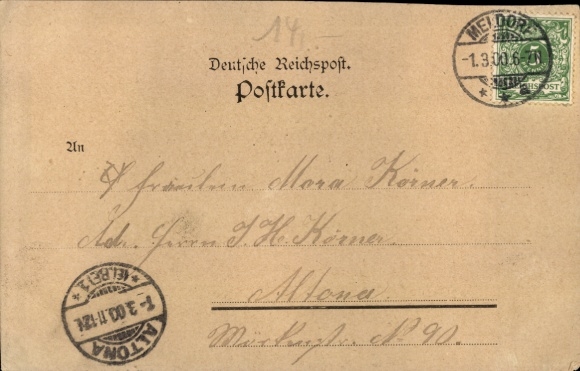 14,-
MELDORF
-1.3.00.6-7N
5
REICHSPOST
Deutsche Reichspost.
Postkarte.
An
Fräulein Mora Körner.
Adr. Herrn J. H. Körner.
Altona
N. 90.
ALTONA
1-3.00.11-12V.
*(ELBE) 1.*